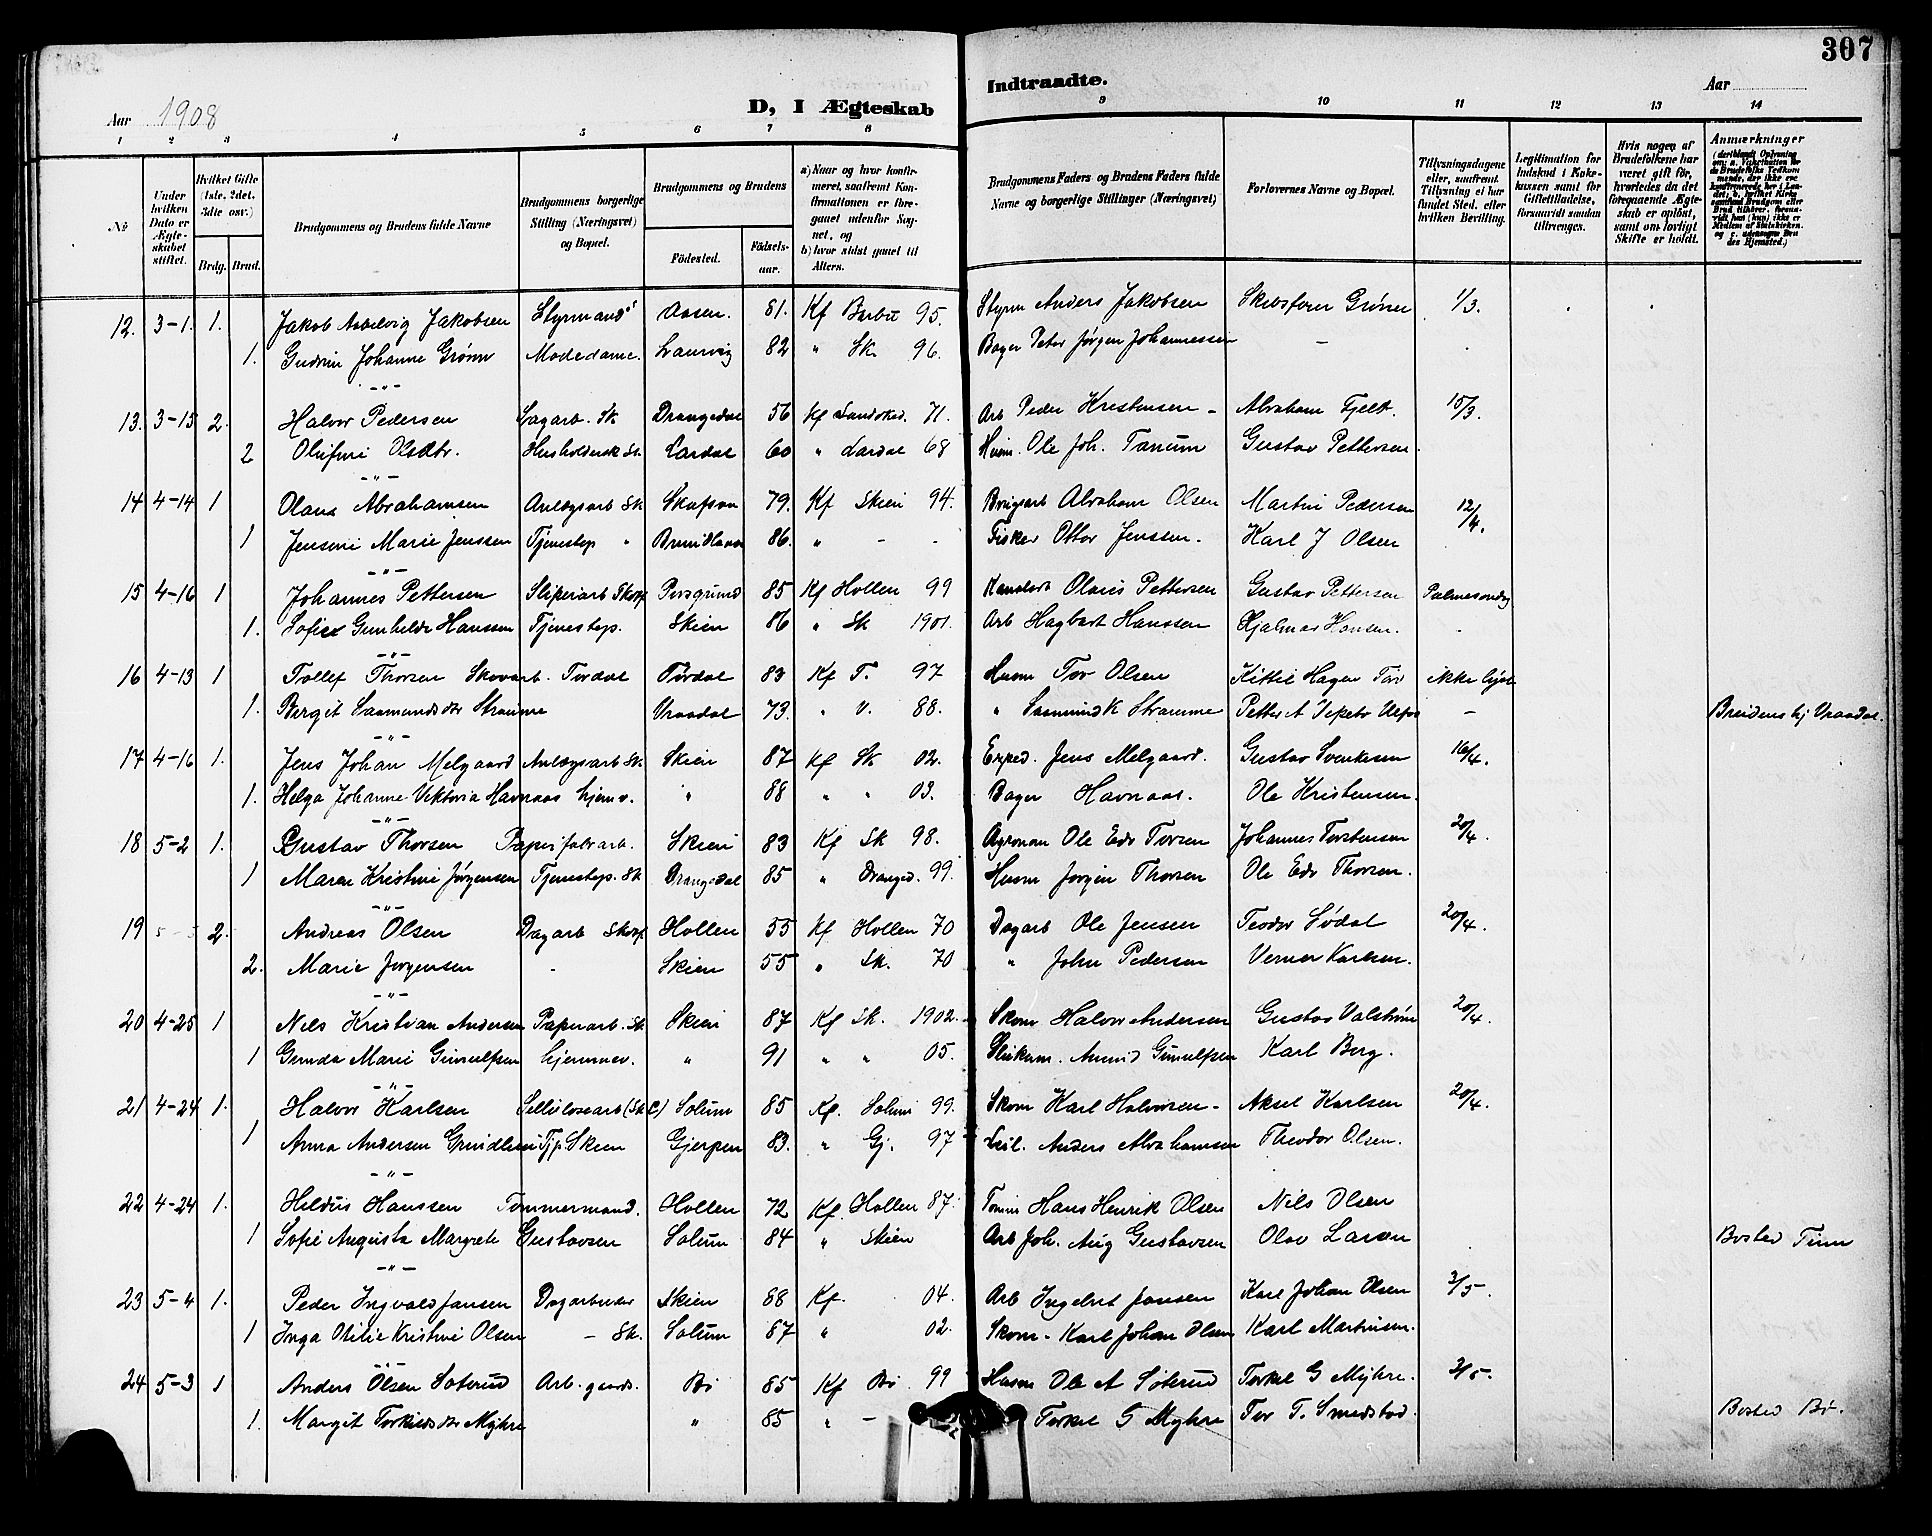 307
Aar 1908
D, I Ægteskab
Indtraadte.
Aar
1 2 3 4 5 6 7 8 9 10 11 12 13 14
No
Under hvilken Dato er Ægteskabet stiftet.
Hvilket Gifte (1ste, 2det, 3die osv.)
Brdg. Brud.
Brudgommens og Brudens fulde Navne
Brudgommens borgerlige Stilling (Næringsvei) og Bopæl.
Brudgommens og Brudens
Fødested. Fødselsaar.
a) Naar og hvor konfirmeret, saafremt Konfirmationen er foregaaet udenfor Sognet, og
b) hvor sidst gaaet til Alters.
Brudgommens Faders og Brudens Faders fulde Navne og borgerlige Stillinger (Næringsvei)
Forlovernes Navne og Bopæl.
Tillysningsdagene eller, saafremt Tillysning ei har fundet Sted, efter hvilken Bevilling.
Legitimation for Indskud i Enkekassen samt for Giftetilladelse, forsaavidt saadan tiltrænges.
Hvis nogen af Brudefolkene har været gift før, hvorledes da det foregaaende Ægteskab er opløst, samt om lovligt Skifte er holdt.
Anmærkninger
12. 3-1. 1. Jakob Jakobsen Styrmand Aasen. 81. Kf Barbu 95. Styrm Anders Jakobsen Grøner 1/3.
1. Gudrun Johanne Grøner Modedame. Laurvig 82 " Sk. 96. Bager Peter Jørgen Johannessen -
13. 3-15 2. Halvor Pedersen Sagarb. Sk Drangedal 56 Kf Sandøked. 71. Arb Peder Kristensen - Abraham Fjelt. 15/3.
2 Olufine Olsdtr. Husholderske Sk. Lardal 60 " Lardal 68 Husm. Ole Joh. Tanum Gustav Pettersen.
14 4-14 1 Olaus Abrahamsen Anlægsarb Sk 79. Kf Skien 94. Brugsarb Abraham Olsen Martin Pedersen 12/4.
1 Jensine Marie Jenssen Tjenestep " Brunlanes 86. " - - Fisker Ottar Jenssen. Karl J Olsen
15 4-16 1 Johannes Pettersen Sliperiarb Skotf Porsgrund 85 Kf Hollen 99 Olaus Pettersen Gustav Pettersen Palmesøndag
1. Sofie Gunhilde Hanssen Tjenestep. Skien 86 " Sk 1901. Arb Hagbart Hanssen Hjalmar Hansen. -
16 4-13 1 Tollef Thorsen Skovarb. Tørdal Tørdal 83 Kf T. 97 Husm Tor Olsen Kittil Hagen Tør ikke lyst
1. Bergit Saamundsdtr Straume Vraadal 73. " V. 88. " Saamund K Straume Petter A Ulfos - Brudens hj Vraadal.
17 4-16 1. Jens Johan Melgaard Anlægsarb Sk. Skien 87 Kf Sk 02. Exped. Jens Melgaard. Gustav Svenksen 16/4.
1. Helga Johanne Viktoria Havnaas hjemv. " 88 " " 03. Bager Havnaas. Ole Kristensen.
18 5-2 1. Gustav Thorsen Papirfabrarb. Skien 83 Kf Sk 98. Agronom Ole Edv Torsen Johannes Torstensen 20/4.
1 Maren Kristine Jørgensen Tjenestep. Sk Drangedal 85 " Dranged. 99. Husm Jørgen Thorsen Ole Edv Thorsen.
19 5-3 2. Andreas Olsen Dagarb Skotf Hollen 55 Kf Hollen 70 Dagarb Ole Jensen Teodor Sødal 20/4.
2. Marie Jørgensen - Skien 55 " Sk. 70 " John Pedersen Verner Karlsen.
20 4-25 1 Nils Kristian Andersen Papirarb. Sk Skien 87 Kf Sk. 1902. Skom Halvor Andersen Gustav Valstrøm 20/4.
1 Gunda Marie Gunulfsen hjemmev. " 91 " " 05. Gunulfsen Karl Berg.
21 4-24 1. Halvor Karlsen Cellulosearb (Sk C) Solum 85 Kf. Solum 99. Skom Karl Halvorsen - Aksel Karlsen 20/4.
1 Anna Andersen Grindlien Tjp. Skien Gjerpen 83. " Gj. 97 Anders Abrahamsen Theodor Olsen.
22 4-24 1. Hildus Hanssen Tømmermand. Hollen 72 Kf. Hollen 87. Tømm Hans Henrik Olsen Nils Olsen
1 Sofie Augusta Margrete Gustavsen Solum 84 " Skien Arb Joh. Aug Gustavsen Olav Larsen Bosted Tinn
23 5-4 1. Peder Ingvald Jansen Dagarbeider Skien 88 Kf. 04. Arb Ingebret Jansen Karl Johan Olsen 3/5.
1 Inga Otilie Kristine Olsen - Sk. Solum 87 " 02. Skom - Karl Johan Olsen Karl Martinsen.
24 5-3 1 Anders Olsen Soterud Arb. gaards. Bø 85 Kf Bø 99 Husm Ole A Søterud Torkel G Myhre. 3/5.
1. Margit Torkildsdtr Myhre " 85 " - Torkel G Myhre Tor T. Smedstad. Bosted Bø.